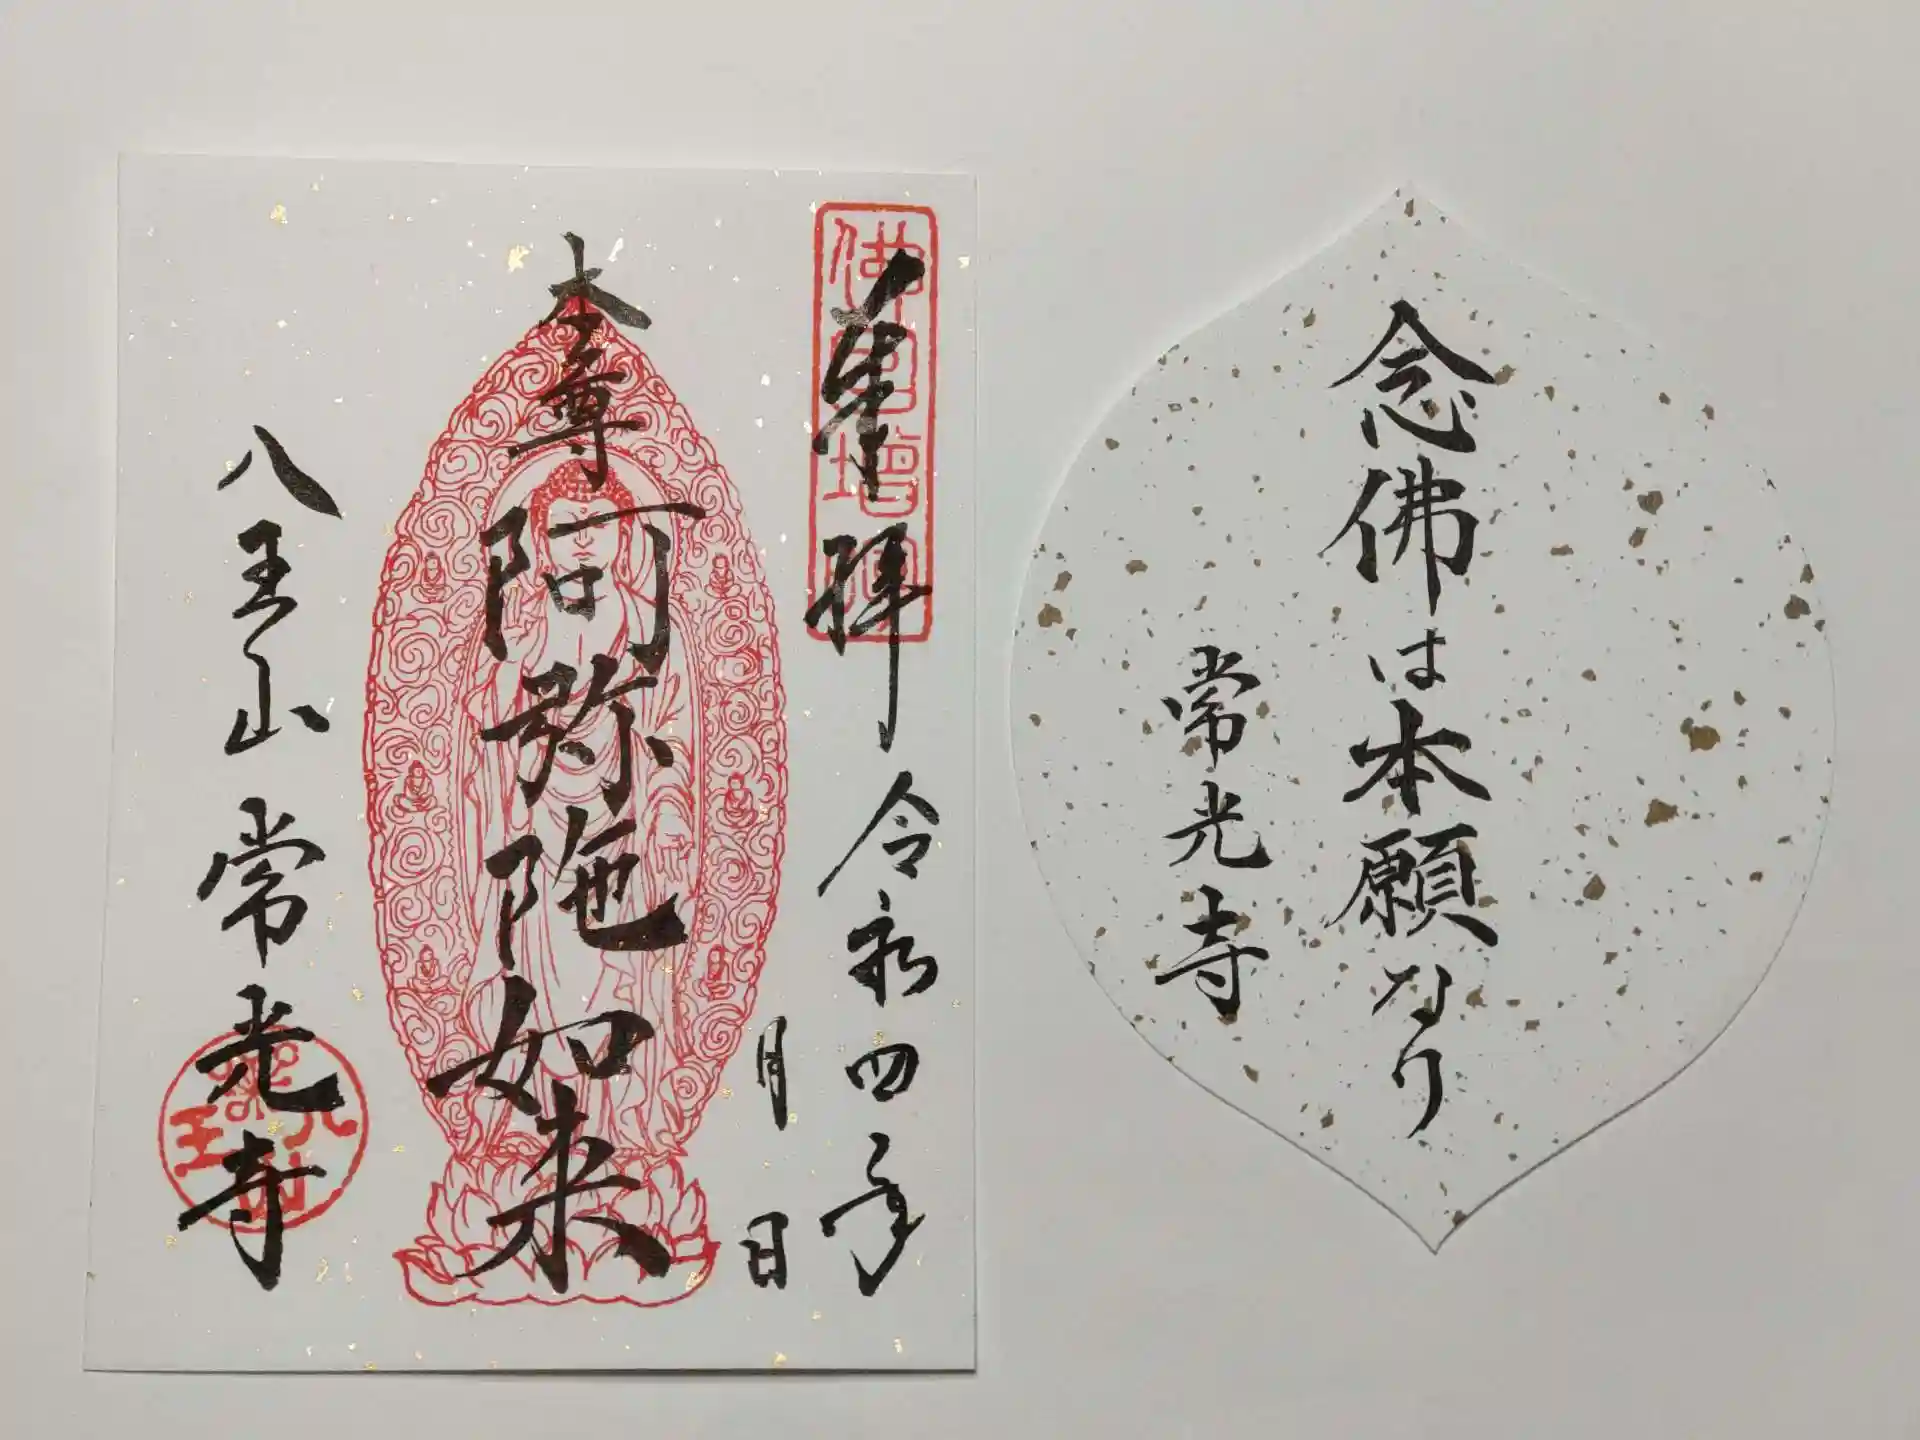 念佛は本願なり
常光寺
奉拝 令和四年
月 日
本尊 阿弥陀如来
八王山 常光寺